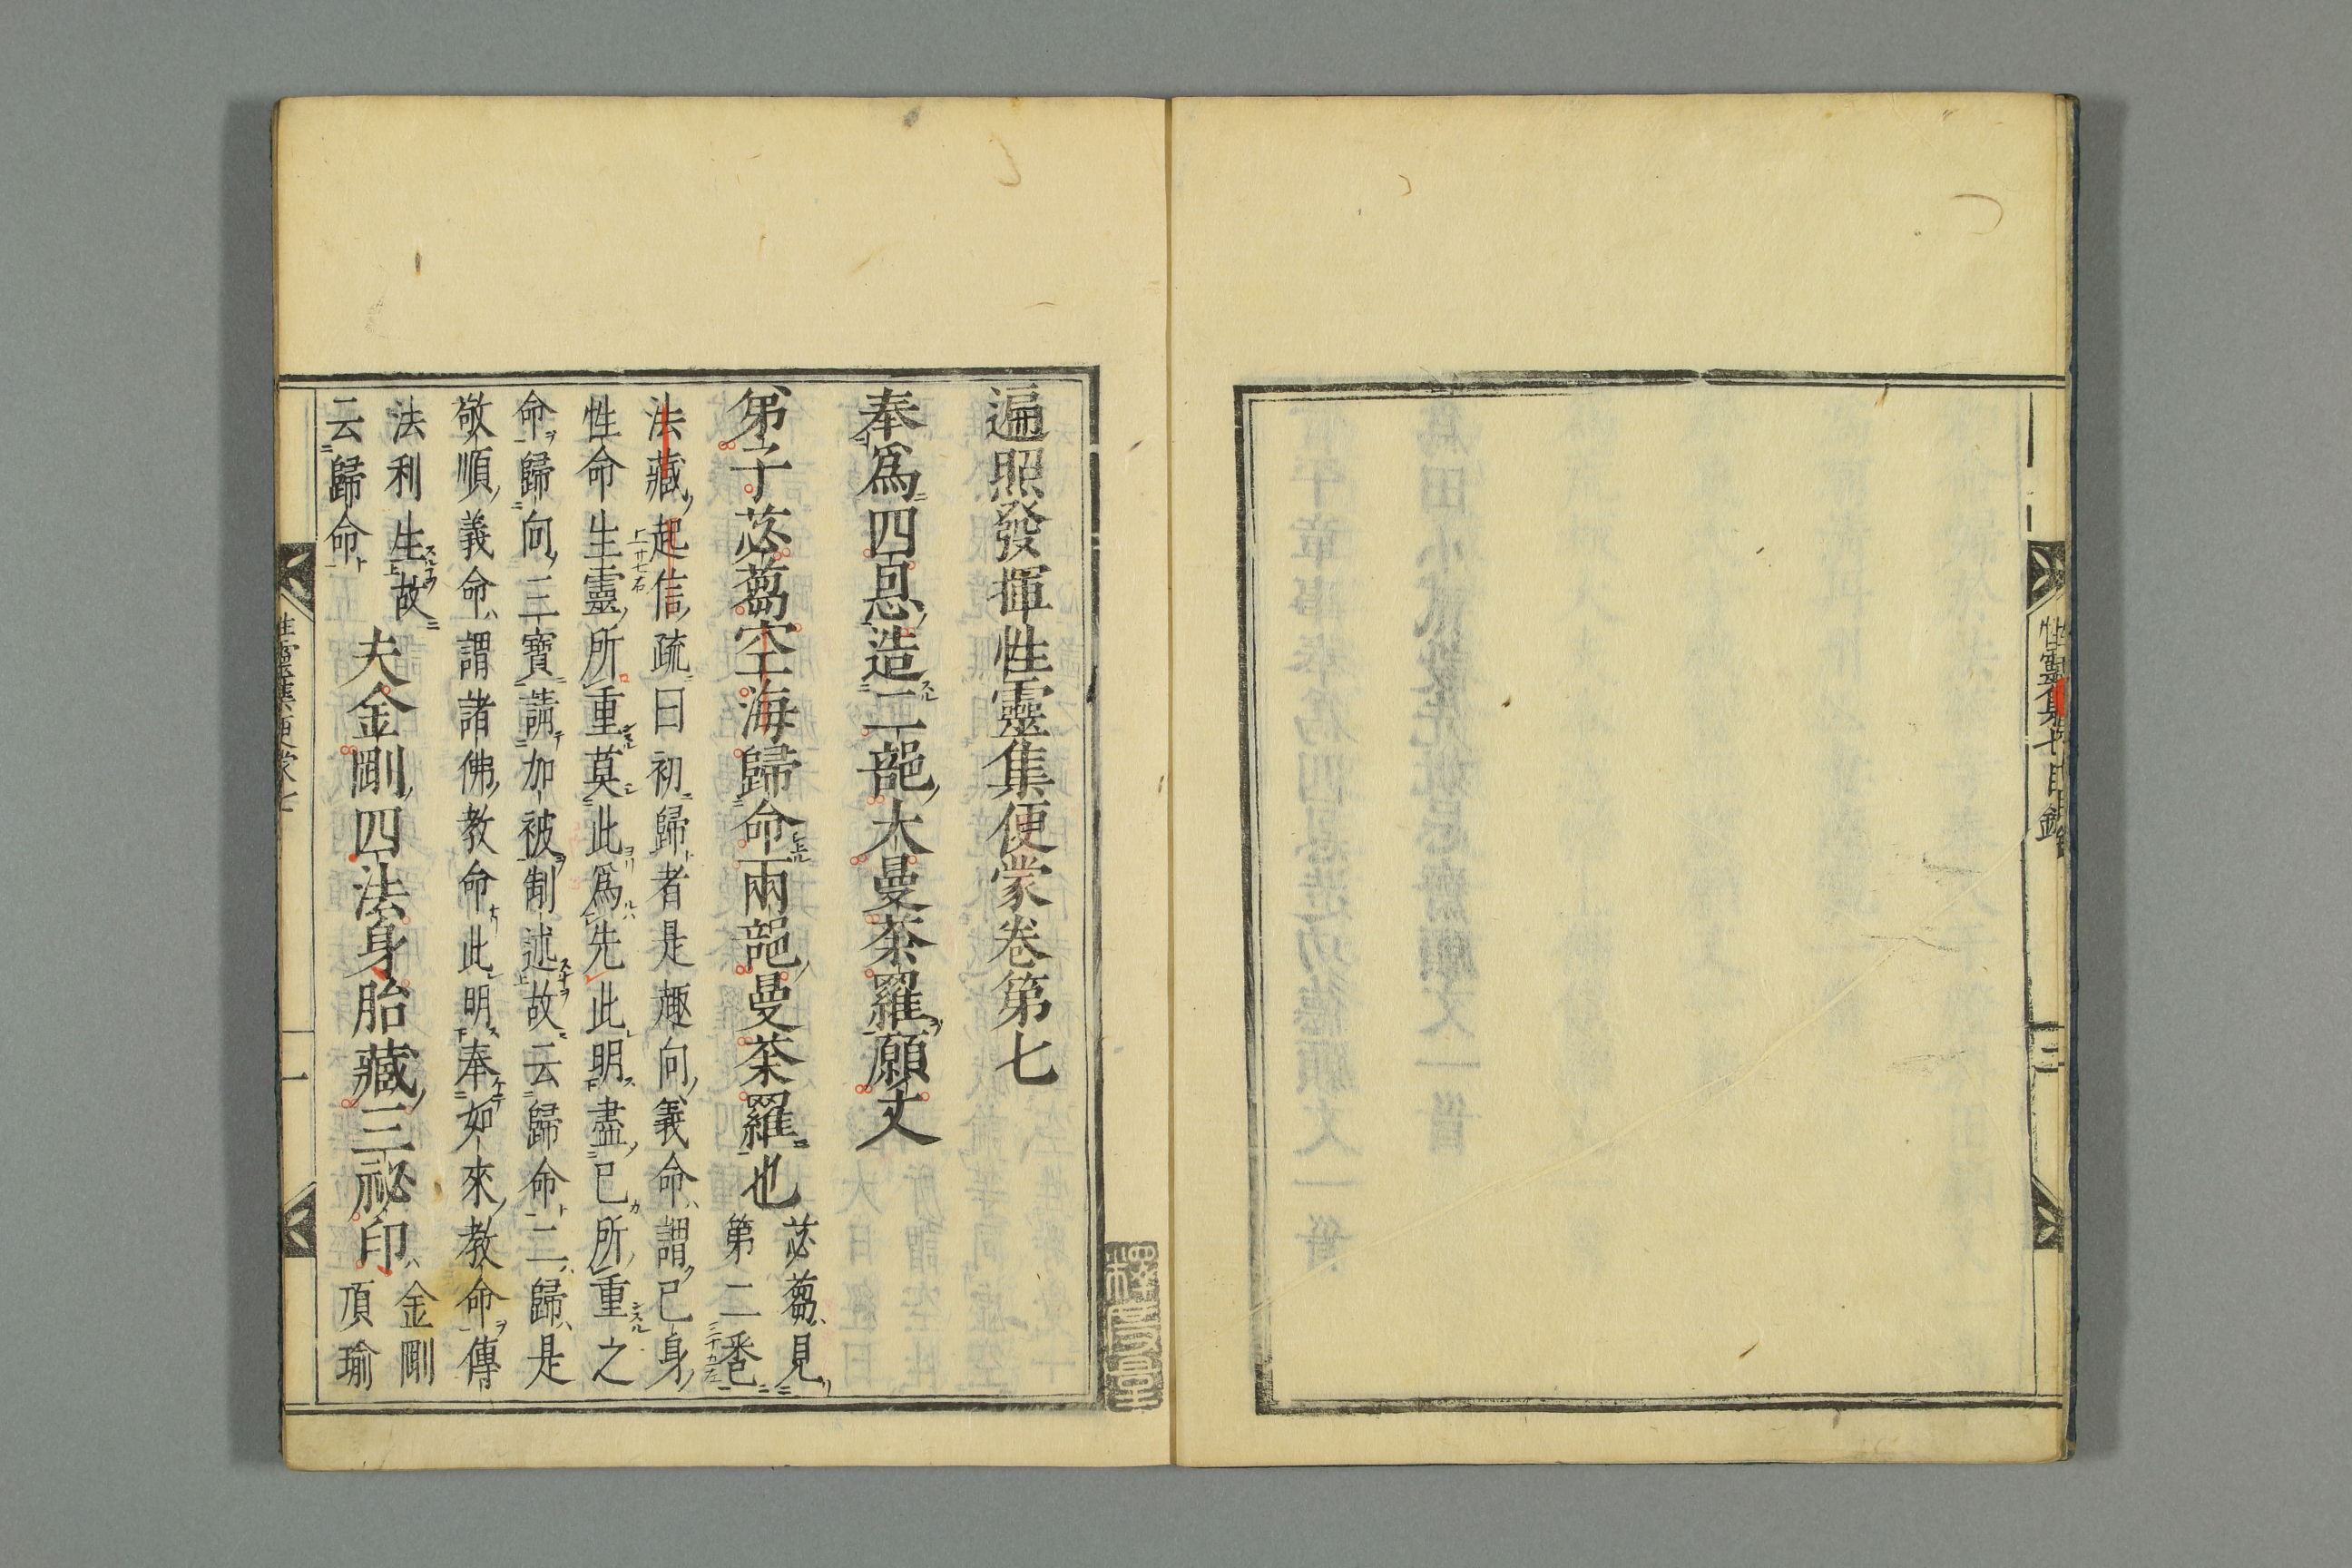 性靈集七目錄
二
遍照發揮性靈集便蒙卷第七
奉爲四恩造二部大曼荼羅願文
弟子苾蒭空海歸命兩部曼荼羅也
苾蒭見
第二卷
法藏起信疏曰初歸者是趣向義命謂己身
性命生靈所重莫此爲先此明盡己所重之
命歸向三寶請加被制述故云歸命二歸是
敬順義命謂諸佛教命此明奉如來教命傳
法利生故
云歸命
夫金剛四法身胎藏三祕印
金剛
頂瑜
性靈集便蒙七
一